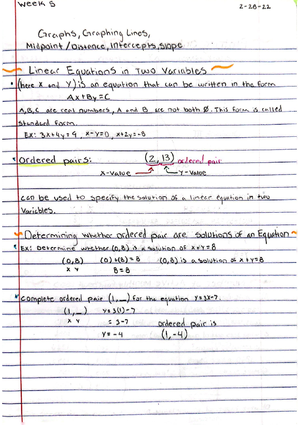 Week 5
2-28-22
Graphs, Graphing Lines,
Midpoint/Distance, Intercepts, Slope
Linear Equations in Two Variables
(here x and y) is an equation that can be written in the form
Ax+By=C
A,B,C are real numbers, A and B are not both 0. This form is called
standard form.
Ex: 3x+4y=9, x-y=0, x+2y=-8
Ordered pairs: (2,13) ordered pair
x-value y-value
can be used to specify the solution of a linear equation in two
variables.
Determining whether ordered pair are solutions of an Equation
Ex: Determine whether (0,8) is a solution of x+y=8
(0,8) (0)+(8)=8 (0,8) is a solution of x+y=8
x y 8=8
Complete ordered pair (1,__) for the equation y=3x-7.
(1,__) y=3(1)-7
x y =3-7 ordered pair is
y=-4 (1,-4)